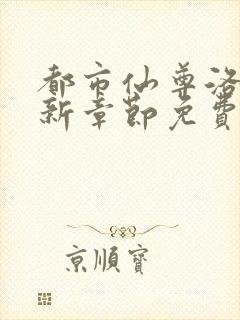 都市仙尊洛
新章節免費
京順寶